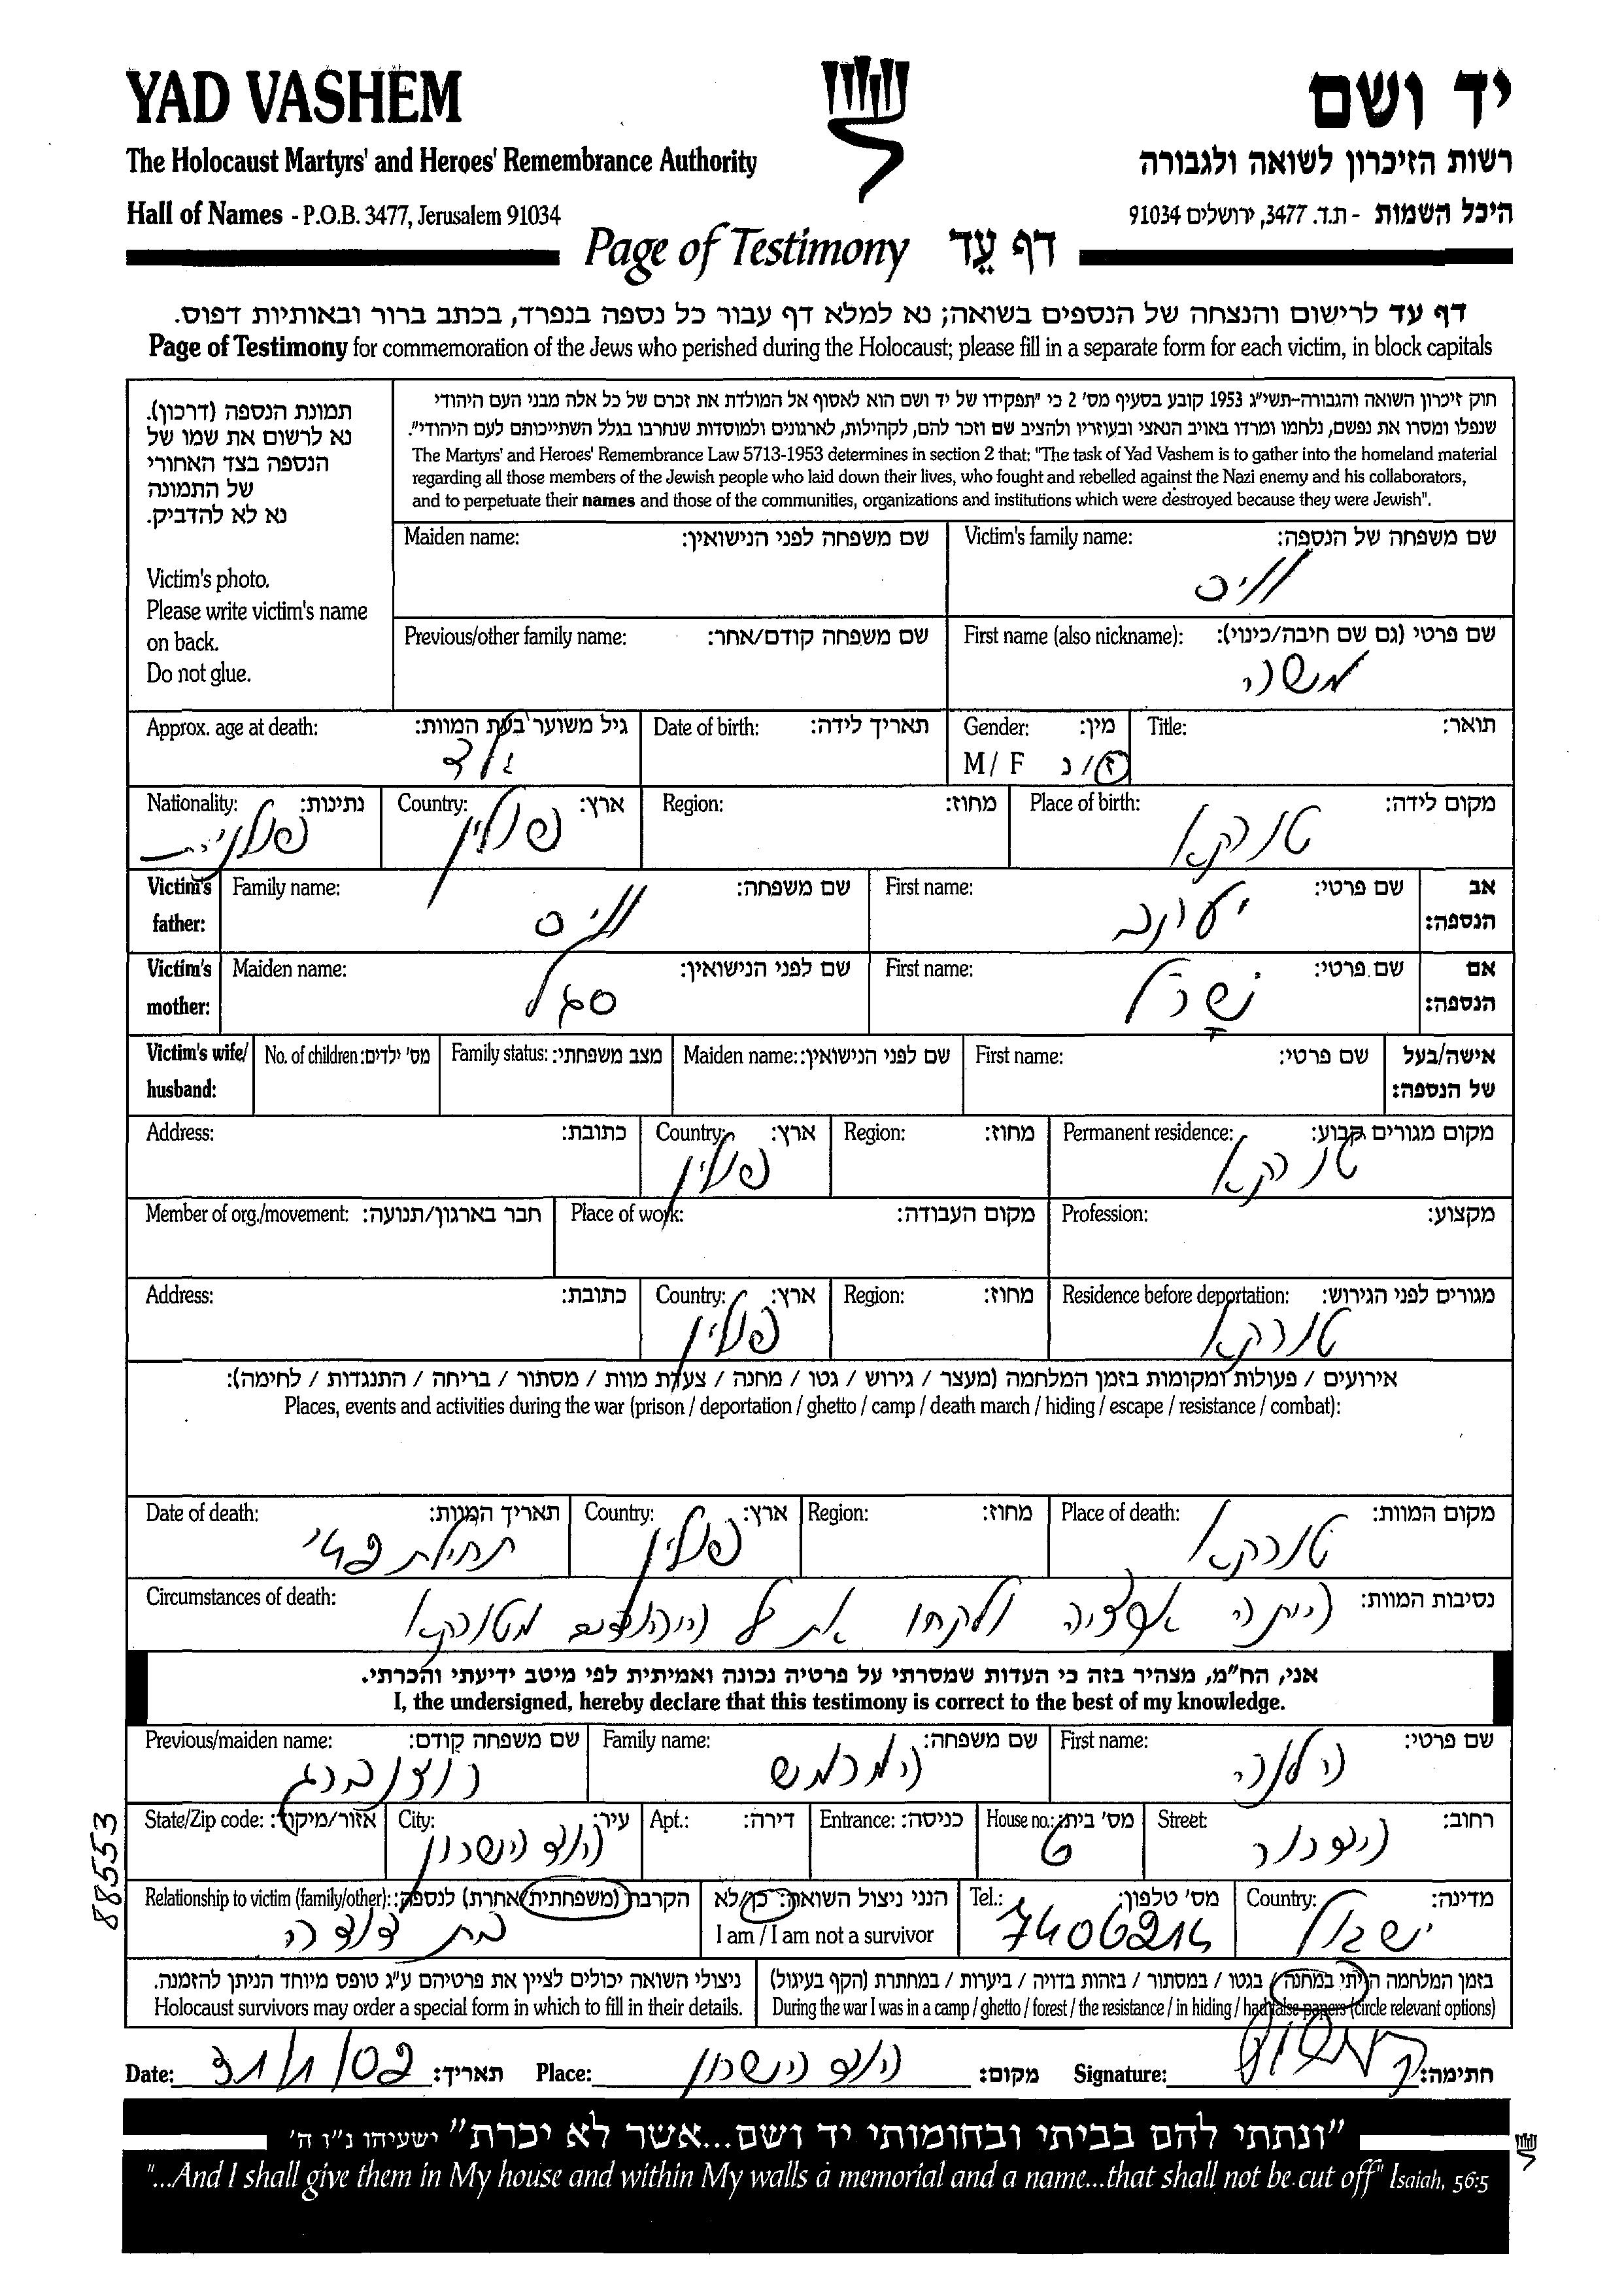 YAD VASHEM
יד ושם
The Holocaust Martyrs' and Heroes' Remembrance Authority
רשות הזיכרון לשואה ולגבורה
Hall of Names - P.O.B. 3477, Jerusalem 91034
היכל השמות - ת.ד. 3477, ירושלים 91034
Page of Testimony דף עֵד
דף עד לרישום והנצחה של הנספים בשואה; נא למלא דף עבור כל נספה בנפרד, בכתב ברור ובאותיות דפוס.
Page of Testimony for commemoration of the Jews who perished during the Holocaust; please fill in a separate form for each victim, in block capitals
תמונת הנספה (דרכון).
נא לרשום את שמו של
הנספה בצד האחורי
של התמונה
נא לא להדביק.
Victim's photo.
Please write victim's name
on back.
Do not glue.
חוק זיכרון השואה והגבורה-תשי"ג 1953 קובע בסעיף מס' 2 כי "תפקידו של יד ושם הוא לאסוף אל המולדת את זכרם של כל אלה מבני העם היהודי
שנפלו ומסרו את נפשם, נלחמו ומרדו באויב הנאצי ובעוזריו ולהציב שם וזכר להם, לקהילות, לארגונים ולמוסדות שנחרבו בגלל השתייכותם לעם היהודי".
The Martyrs' and Heroes' Remembrance Law 5713-1953 determines in section 2 that: "The task of Yad Vashem is to gather into the homeland material
regarding all those members of the Jewish people who laid down their lives, who fought and rebelled against the Nazi enemy and his collaborators,
and to perpetuate their names and those of the communities, organizations and institutions which were destroyed because they were Jewish".
Victim's family name: שם משפחה של הנספה:
ווייס
Maiden name: שם משפחה לפני הנישואין:
First name (also nickname): שם פרטי (גם שם חיבה/כינוי):
משה
Previous/other family name: שם משפחה קודם/אחר:
Title: תואר:
Gender: מין:
M / F ז/נ
Date of birth: תאריך לידה:
Approx. age at death: גיל משוער בעת המוות:
ילד
Place of birth: מקום לידה:
טורקא
Region: מחוז:
Country: ארץ:
פולין
Nationality: נתינות:
פולנית
Victim's father: אב הנספה:
First name: שם פרטי:
יעקב
Family name: שם משפחה:
ווייס
Victim's mother: אם הנספה:
First name: שם פרטי:
Maiden name: שם לפני הנישואין:
סגל
Victim's wife/ husband: אישה/בעל של הנספה:
First name: שם פרטי:
Maiden name: שם לפני הנישואין:
Family status: מצב משפחתי:
No. of children: מס' ילדים:
Permanent residence: מקום מגורים קבוע:
טורקא
Region: מחוז:
Country: ארץ:
פולין
Address: כתובת:
Profession: מקצוע:
Place of work: מקום העבודה:
Member of org./movement: חבר בארגון/תנועה:
Residence before deportation: מגורים לפני הגירוש:
טורקא
Region: מחוז:
Country: ארץ:
פולין
Address: כתובת:
אירועים / פעולות ומקומות בזמן המלחמה (מעצר / גירוש / גטו / מחנה / צעדת מוות / מסתור / בריחה / התנגדות / לחימה):
Places, events and activities during the war (prison / deportation / ghetto / camp / death march / hiding / escape / resistance / combat):
Place of death: מקום המוות:
טורקא
Region: מחוז:
Country: ארץ:
פולין
Date of death: תאריך המוות:
תחילת
Circumstances of death: נסיבות המוות:
הייתה אקציה ולקחו את כל היהודים מטורקא
אני, הח"מ, מצהיר בזה כי העדות שמסרתי על פרטיה נכונה ואמיתית לפי מיטב ידיעתי והכרתי.
I, the undersigned, hereby declare that this testimony is correct to the best of my knowledge.
First name: שם פרטי:
הלנה
Family name: שם משפחה:
המרמש
Previous/maiden name: שם משפחה קודם:
רוזנברג
Street: רחוב:
הדרור
House no.: מס' בית:
Entrance: כניסה:
Apt.: דירה:
City: עיר:
הוד השרון
State/Zip code: אזור/מיקוד:
88553
Country: מדינה:
ישראל
Tel.: מס' טלפון:
הנני ניצול השואה: כן/לא
I am / I am not a survivor
Relationship to victim (family/other): הקרבה (משפחתית/אחרת) לנספה:
בת דודה
בזמן המלחמה הייתי במחנה / בגטו / במסתור / בזהות בדויה / ביערות / במחתרת (הקף בעיגול)
During the war I was in a camp / ghetto / forest / the resistance / in hiding / had false papers (circle relevant options)
ניצולי השואה יכולים לציין את פרטיהם ע"ג טופס מיוחד הניתן להזמנה.
Holocaust survivors may order a special form in which to fill in their details.
Date: 31/1/02 תאריך: Place: הוד השרון מקום: Signature: חתימה:
"ונתתי להם בביתי ובחומותי יד ושם...אשר לא יכרת" ישעיהו נ"ו ה'
"...And I shall give them in My house and within My walls a memorial and a name...that shall not be cut off" Isaiah, 56:5